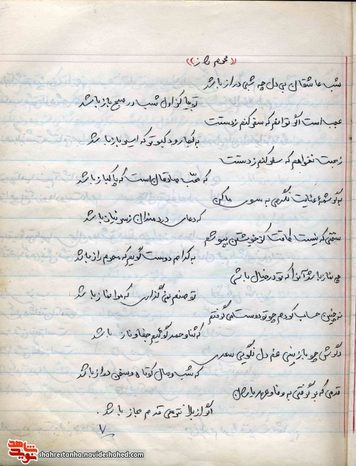 ((محرم راز))
شب عاشقان بی دل چه شبی دراز باشد
تو بیا کز اول شب در صبح باز باشد
عجب است اگر توانم که سفر کنم ز دستت
به کجا رود کبوتر که اسیر باز باشد
ز محبت نخواهم که نظر کنم به رویت
که محب صادق آن است که پاکباز باشد
به کرشمه عنایت نگهی به سوی ما کن
که دعای دردمندان ز سر نیاز باشد
سخنی که نیست طاقت که ز خویشتن بپوشم
به کدام دوست گویم که محرم راز باشد
چه نماز باشد آنرا که تو در خیال باشی
تو صنم نمی گذاری که مرا نماز باشد
نه چنین حساب کردم چو تو دوست می گرفتم
که ثنا و حمد گوئیم و جفا و ناز باشد
دگرش چو باز بینی غم دل نگویی سعدی
که شب وصال کوتاه و سخن دراز باشد
قدمی که برگرفتی به وفا و عهد یاران
اگر از بلا بترسی قدم مجاز باشد
7
نوید شاهد
shahrestanha.navideshahed.com